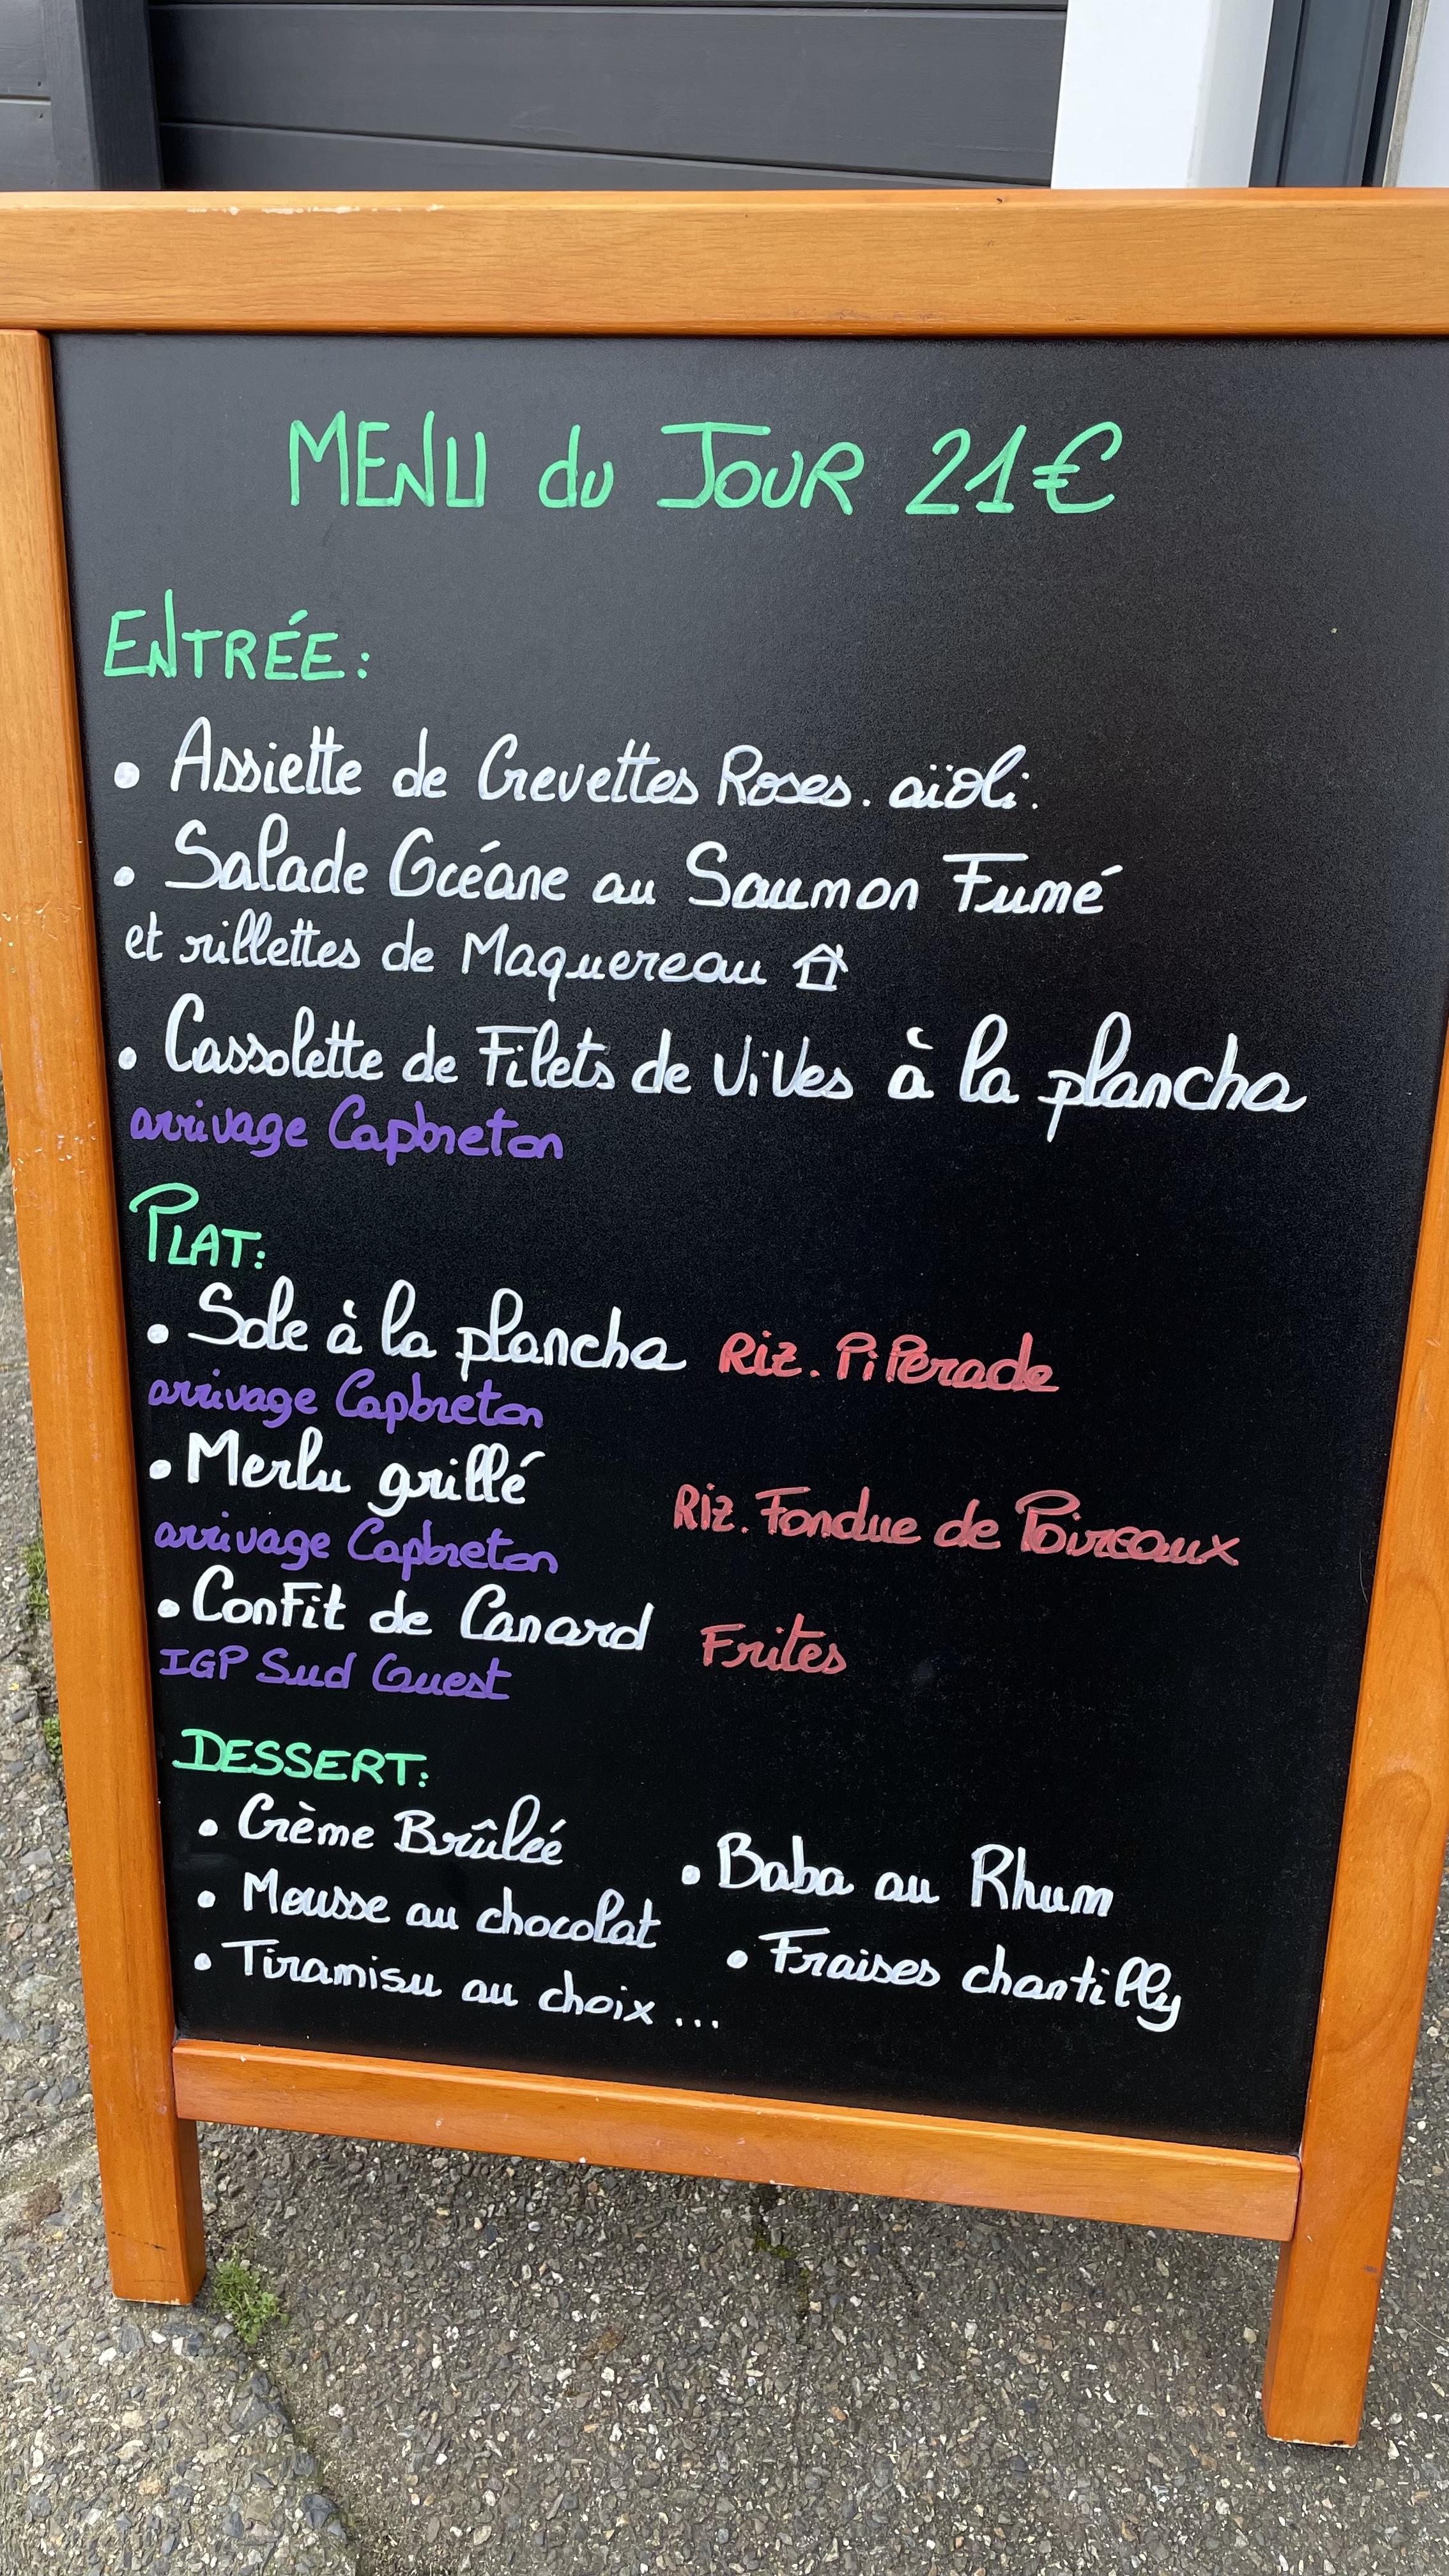 MENU du JOUR 21€
ENTRÉE:
• Assiette de Crevettes Roses. aïoli.
• Salade Océane au Saumon Fumé
et rillettes de Maquereau
• Cassolette de Filets de ViVes à la plancha
arrivage Capbreton
PLAT:
• Sole à la plancha Riz. PiPerade
arrivage Capbreton
• Merlu grillé Riz. Fondue de Poireaux
arrivage Capbreton
• ConFit de Canard Frites
IGP Sud Ouest
DESSERT:
• Crème Brûleé
• Baba au Rhum
• Mousse au chocolat
• Fraises chantilly
• Tiramisu au choix ...